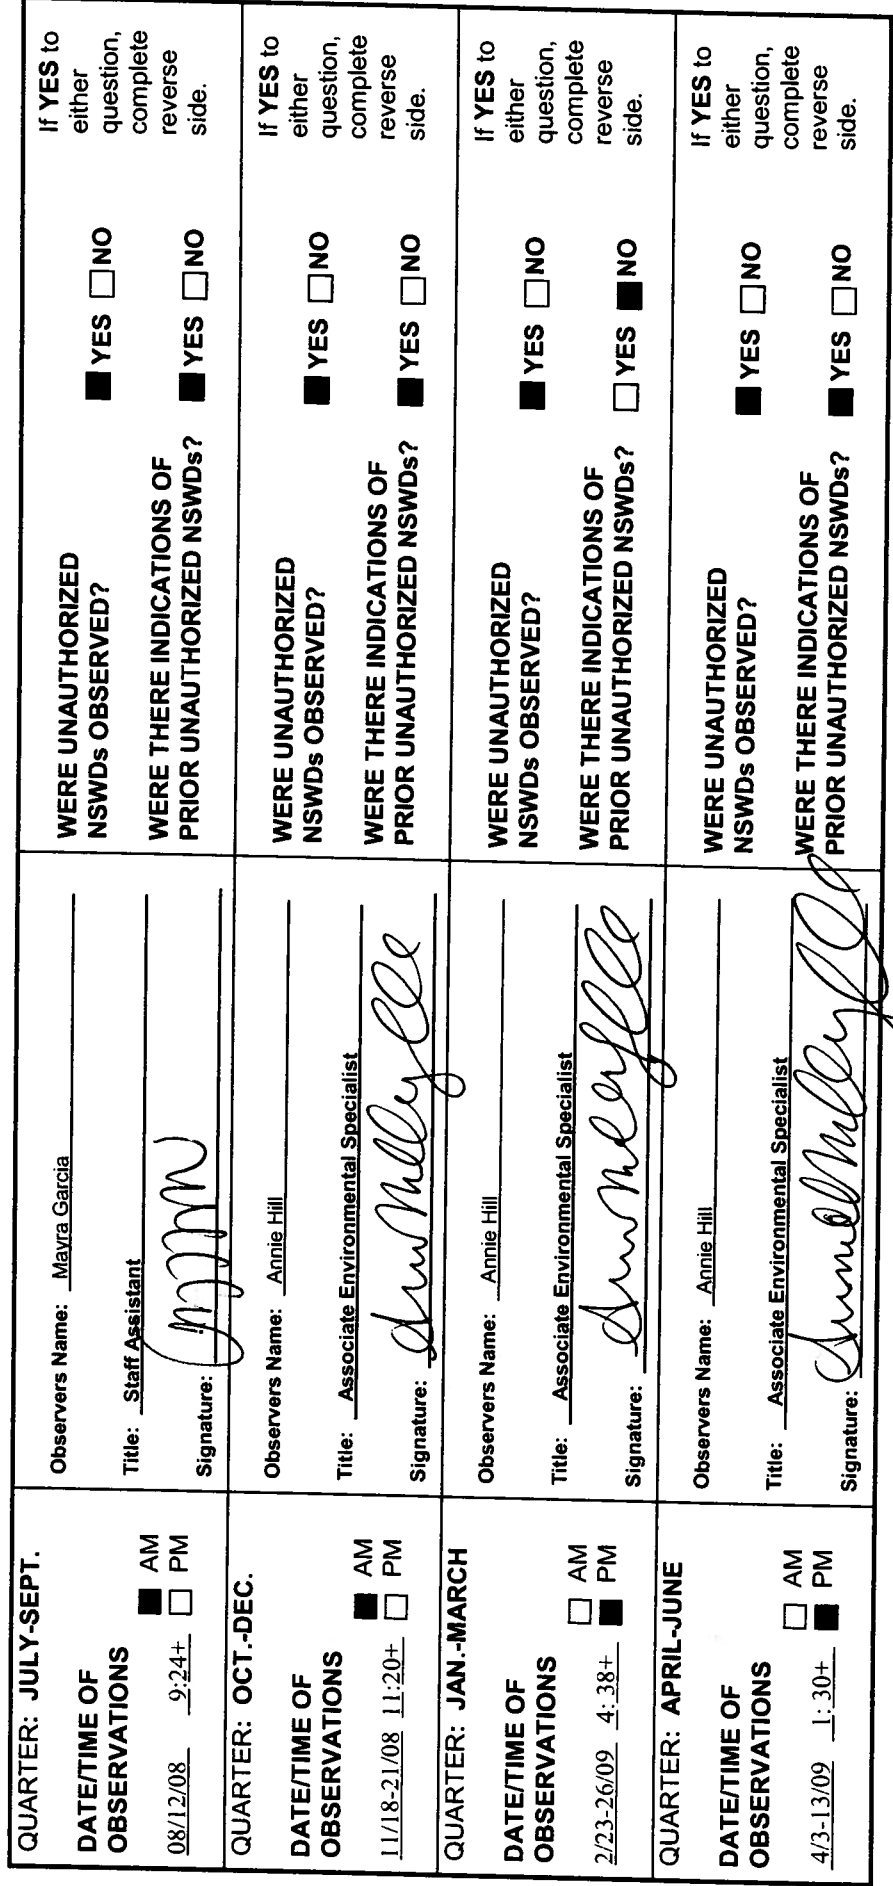 QUARTER: JULY-SEPT.
DATE/TIME OF
OBSERVATIONS
08/12/08 9:24+ ■ AM
□ PM
Observers Name: Mayra Garcia
Title: Staff Assistant
Signature:
WERE UNAUTHORIZED
NSWDs OBSERVED? ■ YES □ NO
WERE THERE INDICATIONS OF
PRIOR UNAUTHORIZED NSWDs? ■ YES □ NO
If YES to
either
question,
complete
reverse
side.
QUARTER: OCT.-DEC.
DATE/TIME OF
OBSERVATIONS
11/18-21/08 11:20+ ■ AM
□ PM
Observers Name: Annie Hill
Title: Associate Environmental Specialist
Signature:
WERE UNAUTHORIZED
NSWDs OBSERVED? ■ YES □ NO
WERE THERE INDICATIONS OF
PRIOR UNAUTHORIZED NSWDs? ■ YES □ NO
If YES to
either
question,
complete
reverse
side.
QUARTER: JAN.-MARCH
DATE/TIME OF
OBSERVATIONS
2/23-26/09 4: 38+ □ AM
■ PM
Observers Name: Annie Hill
Title: Associate Environmental Specialist
Signature:
WERE UNAUTHORIZED
NSWDs OBSERVED? ■ YES □ NO
WERE THERE INDICATIONS OF
PRIOR UNAUTHORIZED NSWDs? □ YES ■ NO
If YES to
either
question,
complete
reverse
side.
QUARTER: APRIL-JUNE
DATE/TIME OF
OBSERVATIONS
4/3-13/09 1: 30+ □ AM
■ PM
Observers Name: Annie Hill
Title: Associate Environmental Specialist
Signature:
WERE UNAUTHORIZED
NSWDs OBSERVED? ■ YES □ NO
WERE THERE INDICATIONS OF
PRIOR UNAUTHORIZED NSWDs? ■ YES □ NO
If YES to
either
question,
complete
reverse
side.